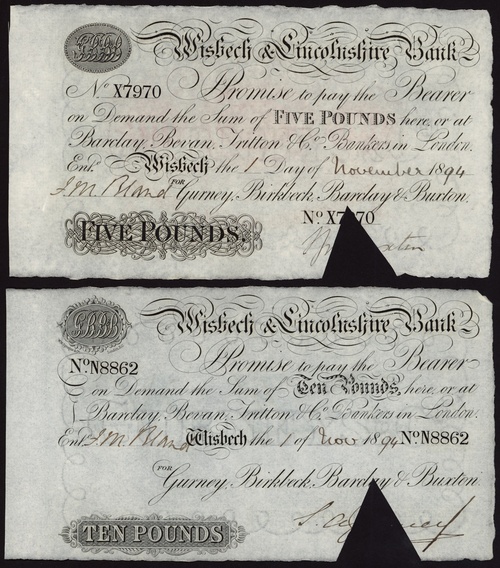 GBBB Wisbech & Lincolnshire Bank
No X7970 I Promise to pay the Bearer
on Demand the Sum of FIVE POUNDS here, or at
Barclay, Bevan, Tritton & Co. Bankers in London.
Entd. Wisbech the 1 Day of November 1894
FOR Gurney, Birkbeck, Barclay & Buxton.
No X7970
FIVE POUNDS.
GBBB Wisbech & Lincolnshire Bank
No. N8862 I Promise to pay the Bearer
on Demand the Sum of Ten Pounds, here, or at
Barclay, Bevan, Tritton & Co. Bankers in London.
Entd. Wisbech the 1 of Nov 1894 No. N8862
FOR Gurney, Birkbeck, Barclay & Buxton.
TEN POUNDS